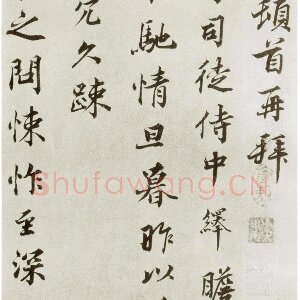 頓首再拜
司徒侍中繹瞻
馳情旦暮昨以
冗久踈
之問悚怍至深
Shufawang.CN